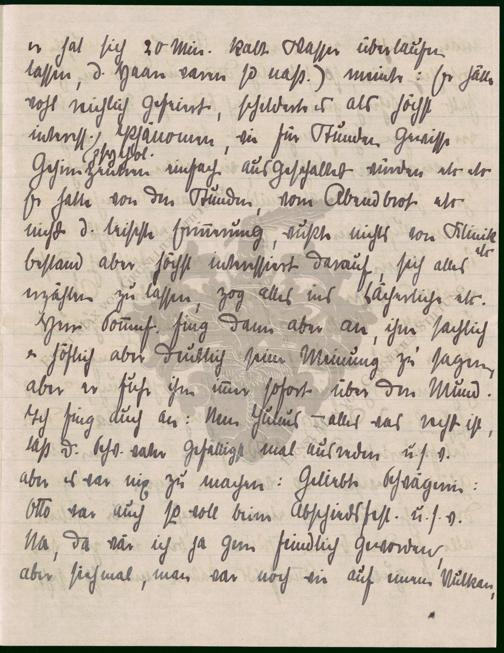 er hat sich 20 Min. kalt Wasser überlaufen
lassen, d. Haare waren so naß.) meinte: (er hätte
wohl reichlich gefeiert, schilderte es als höchst
interess. psychol. Phänomen, wie für Stunden gewisse
Gehirnzentren einfach ausgeschaltet würden etc etc
Er hatte von den Stunden, vom Abendbrot etc
nicht d. leiseste Erinnerung, wußte nichts von Klinik etc
bestand aber höchst interessiert darauf, sich alles
erzählen zu lassen, zog alles ins Lächerliche etc.
Herr fing dann aber an, ihm sachlich
u höflich aber deutlich seine Meinung zu sagen,
aber er fuhr ihm immer sofort über den Mund.
Ich fing auch an: Nein Julius – alles was recht ist,
laß d. Schw.vater gefälligst mal ausreden u.s.w.
aber es war nix zu machen: Geliebte Schwägerin:
Otto war auch so voll beim Abschiedsfest u.s.w.
Na, da wär ich ja gern feindlich geworden,
aber sieh mal, man war noch wie auf einem Vulkan,